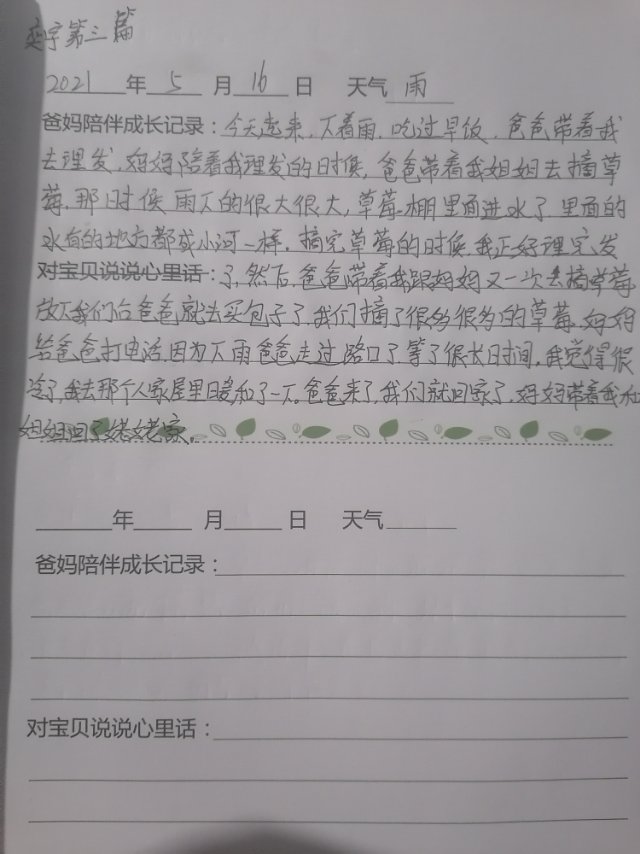 奕宇第三篇
2021年5月16日 天气 雨
爸妈陪伴成长记录：今天起来，下着雨，吃过早饭，爸爸带着我
去理发，妈妈陪着我理发的时候，爸爸带着我姐姐去摘草
莓，那时候雨下的很大很大，草莓棚里面进水了里面的
水有的地方都成小河一样，摘完草莓的时候，我正好理完发
对宝贝说说心里话：了，然后，爸爸带着我跟妈妈又一次去摘草莓
放下我们台爸爸就去买包子了，我们摘了很多很多的草莓，妈妈
给爸爸打电话，因为下雨爸爸走过路口了等了很长时间，我觉得很
冷了，我去那个人家屋里暖和了一下。爸爸来了，我们就回家了，妈妈带着我和
姐姐回了姥姥家。
年 月 日 天气
爸妈陪伴成长记录：
对宝贝说说心里话：